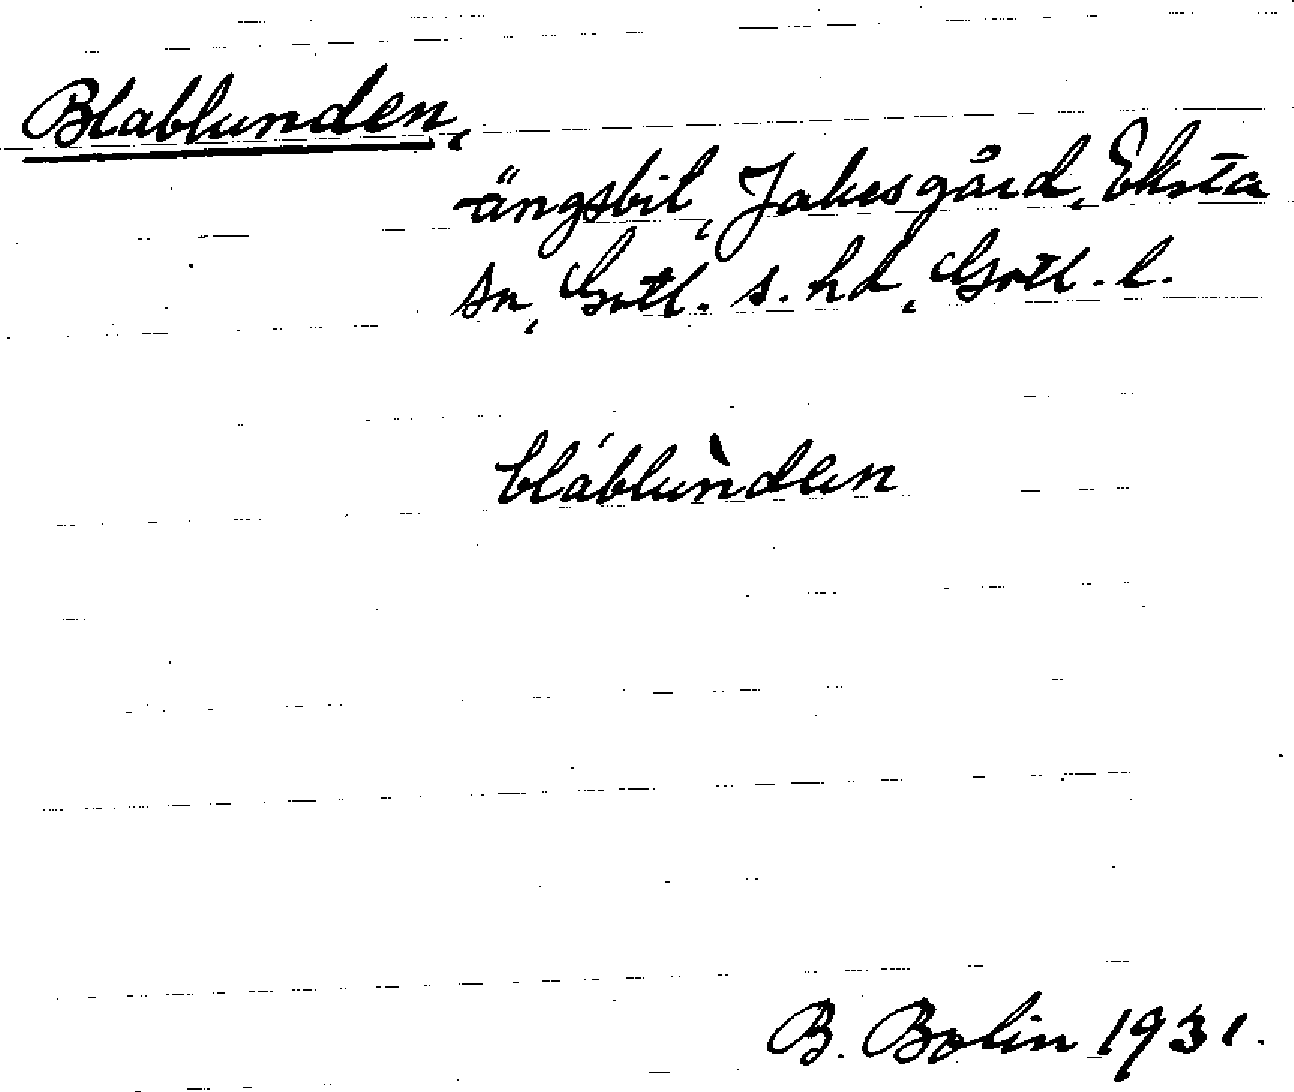 Blablunden,
ängsbil, Jakesgård, Eksta
sn, Gotl. s. hd, Gotl. l.
bláblùnden
B. Bolin 1931.